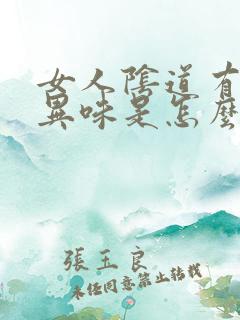 女人陰道有
異味是怎麼
張玉良
未經同意禁止轉載